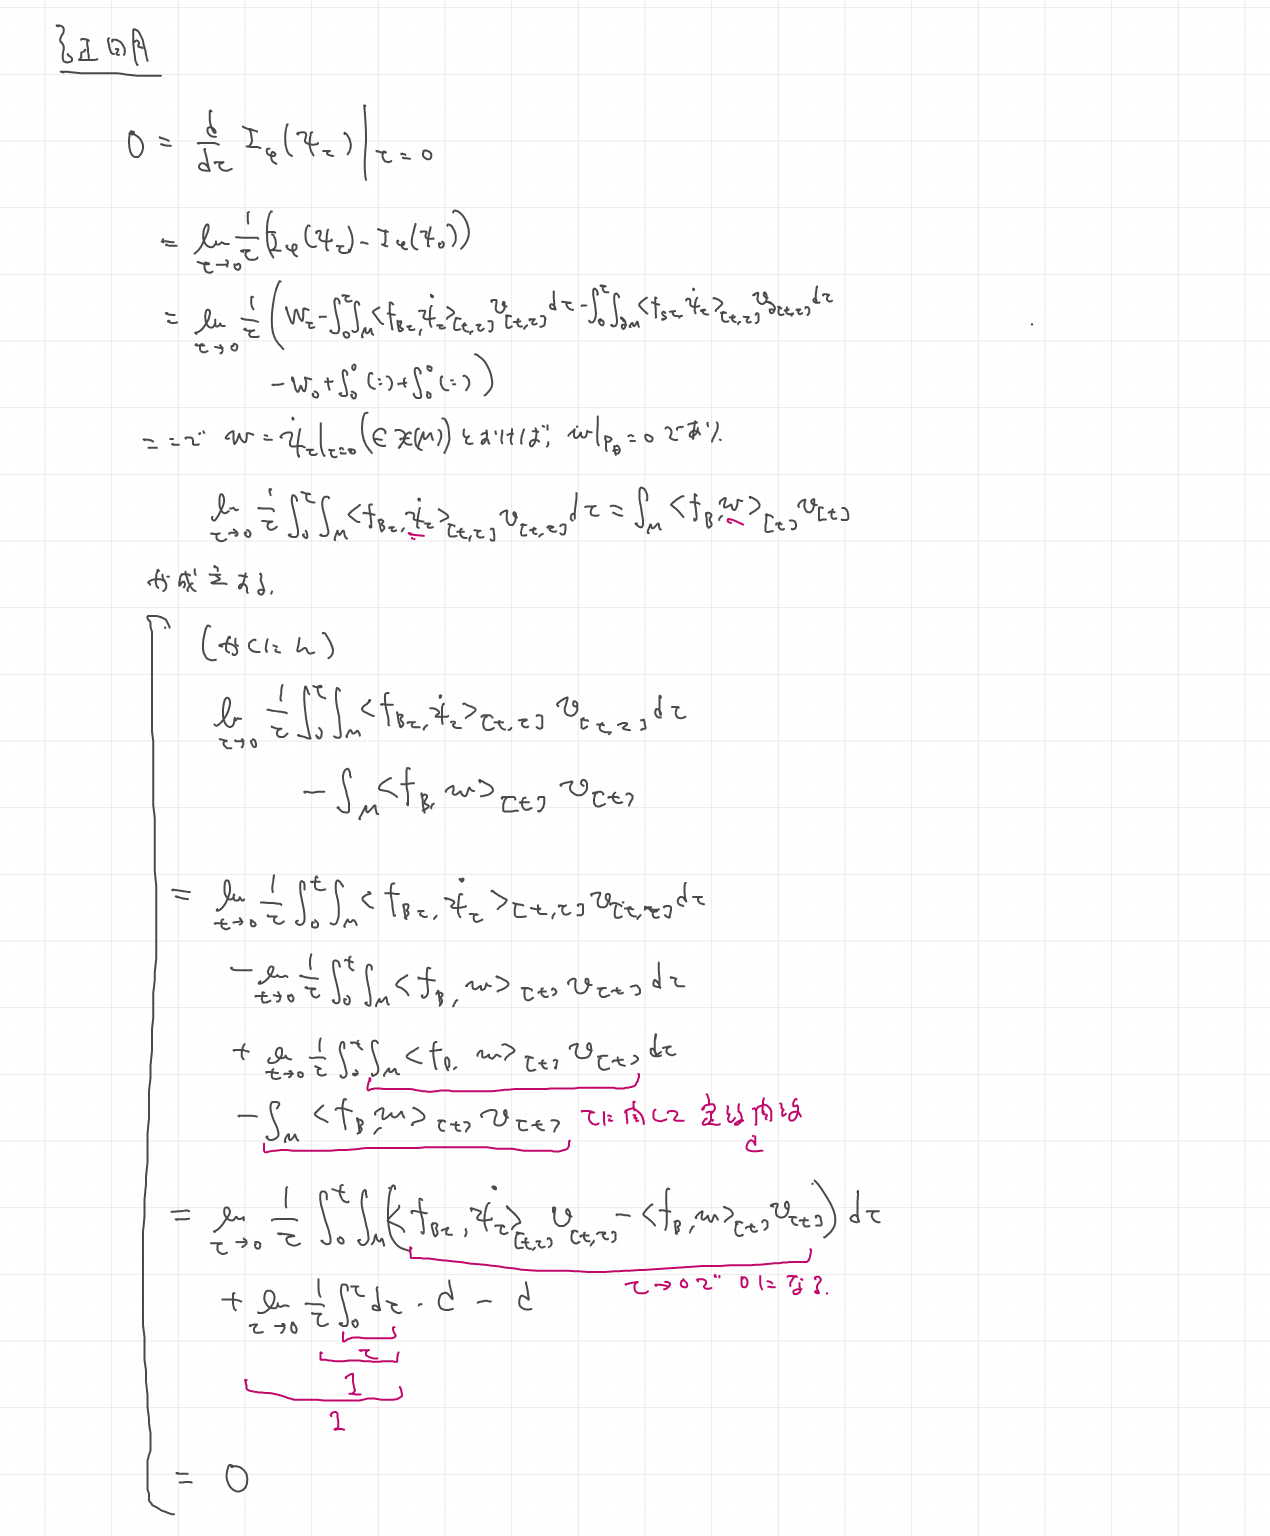 証明
0 = d/dτ I_φ(ψ_τ)|_{τ=0}
= lim_{τ→0} 1/τ (I_φ(ψ_τ) - I_φ(ψ_0))
= lim_{τ→0} 1/τ (W_τ - ∫_0^τ ∫_M <f_{Bτ}, ψ̇_τ>_{[t,τ]} v_{[t,τ]} dτ - ∫_0^τ ∫_{∂M} <f_{sτ}, ψ̇_τ>_{[t,τ]} v_{∂[t,τ]} dτ
- W_0 + ∫_0^0 (…) + ∫_0^0 (…))
ここで w = ψ̇_τ|_{τ=0} (∈ 𝔛(M)) とおけば, w|_{P_B} = 0 であり.
lim_{τ→0} 1/τ ∫_0^τ ∫_M <f_{Bτ}, ψ̇_τ>_{[t,τ]} v_{[t,τ]} dτ = ∫_M <f_B, w>_{[t]} v_{[t]}
が成立する.
(かくにん)
lim_{τ→0} 1/τ ∫_0^τ ∫_M <f_{Bτ}, ψ̇_τ>_{[t,τ]} v_{[t,τ]} dτ
- ∫_M <f_B, w>_{[t]} v_{[t]}
= lim_{t→0} 1/τ ∫_0^t ∫_M <f_{Bτ}, ψ̇_τ>_{[t,τ]} v_{[t,τ]} dτ
- lim_{t→0} 1/τ ∫_0^t ∫_M <f_B, w>_{[t]} v_{[t]} dτ
+ lim_{t→0} 1/τ ∫_0^t ∫_M <f_B, w>_{[t]} v_{[t]} dτ
- ∫_M <f_B, w>_{[t]} v_{[t]} τに関して
d
= lim_{τ→0} 1/τ ∫_0^t ∫_M (<f_{Bτ}, ψ̇_τ>_{[t,τ]} v_{[t,τ]} - <f_B, w>_{[t]} v_{[t]}) dτ
τ→0で 0になる.
+ lim_{τ→0} 1/τ ∫_0^τ dτ · d - d
τ
1
1
= 0